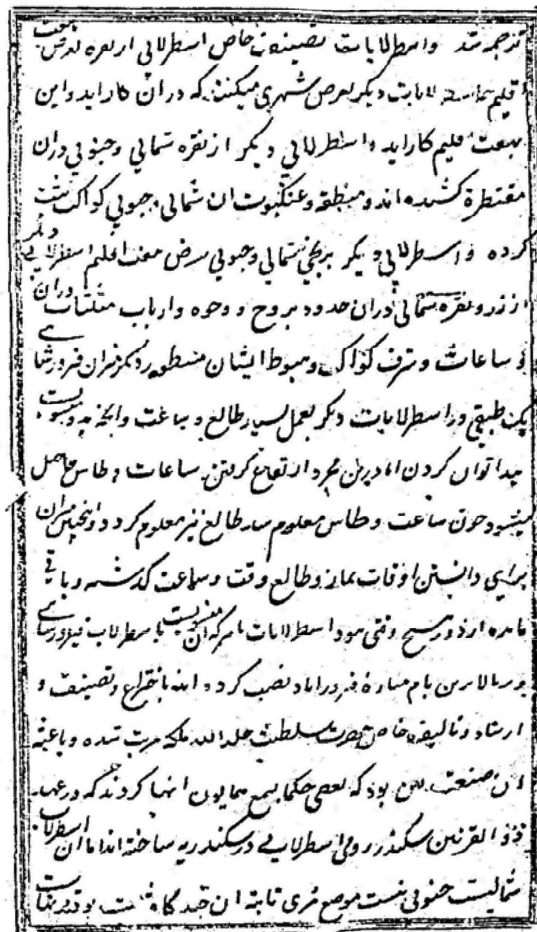 ترجمه شد و اسطرلابات تصنیفات خاص اسطرلابی از نقره بعرض هفت
اقلیم اسطرلابات دیگر بعرض شهری میکنند که دران کار اید و این
بهفت اقلیم کار اید و اسطرلابی دیگر از نقره شمالی و جنوبی دران
مقنطره کشیده اند و منطقه و عنکبوت ان شمالی و جنوبی کواکب ثبت
کرده و اسطرلابی دیگر برنجی شمالی و جنوبی بعرض هفت اقلیم اسطرلابی دیگر
از زر و نقره شمالی دران حدود بروج و وجوه و ارباب مثلثات دران
و ساعات و شرف کواکب و هبوط ایشان مسطور دیگر میزان فیروزشاهی
یک طبقی در اسطرلابات دیگر بعمل بسیار طالع و ساعت و انچه بدو منسوبست
پیدا توان کردن اما درین مجرد ارتفاع گرفتن ساعات و طاس حاصل
میشود چون ساعت و طاس معلوم شد طالع نیز معلوم گردد و اینچنین میزان
برای دانستن اوقات نماز و طالع وقت و ساعت گذشته و باقی
مانده از روز هیچ وقتی نبود اسطرلابات نامیرکه ان منسوبست باسطرلاب فیروزشاهی
بر بالاترین بام مناره فیروزاباد نصب کرده اند باختراع و تصنیف و
ارشاد و تالیف خاص حضرت سلطنت خلد الله ملکه مرتب شده و باعث
ان صنعت این بود که بعضی حکما بسمع همایون انها کردند که در عهد
ذو القرنین سکندر رومی اسطرلابی در سکندریه ساخته اند اما ان اسطرلاب
شمالیست جنوبی نیست موضع ان چند گاه